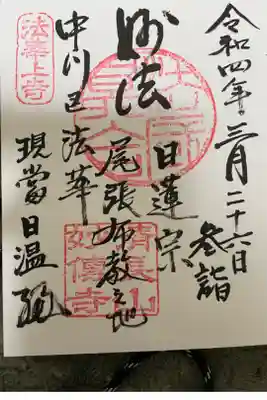 令和四年三月二十六日
参詣
日蓮宗
妙法
尾張布教之地
中川区法華
現當日温
妙傳寺